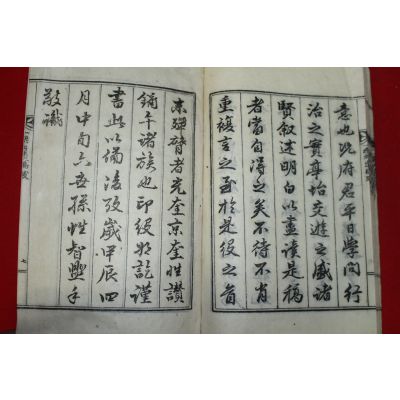 意也既府君平日學問行
治之實與始交遊之盛諸
賢叙述明白以盡讀是稿
者當自得之矣不待不肖
重複言之至於是役之首
末殫者光奎京奎性讚
鍾千諸族也印役將訖謹
書此以備後攷歲甲辰四
月中旬六世孫性智盥手
敬識